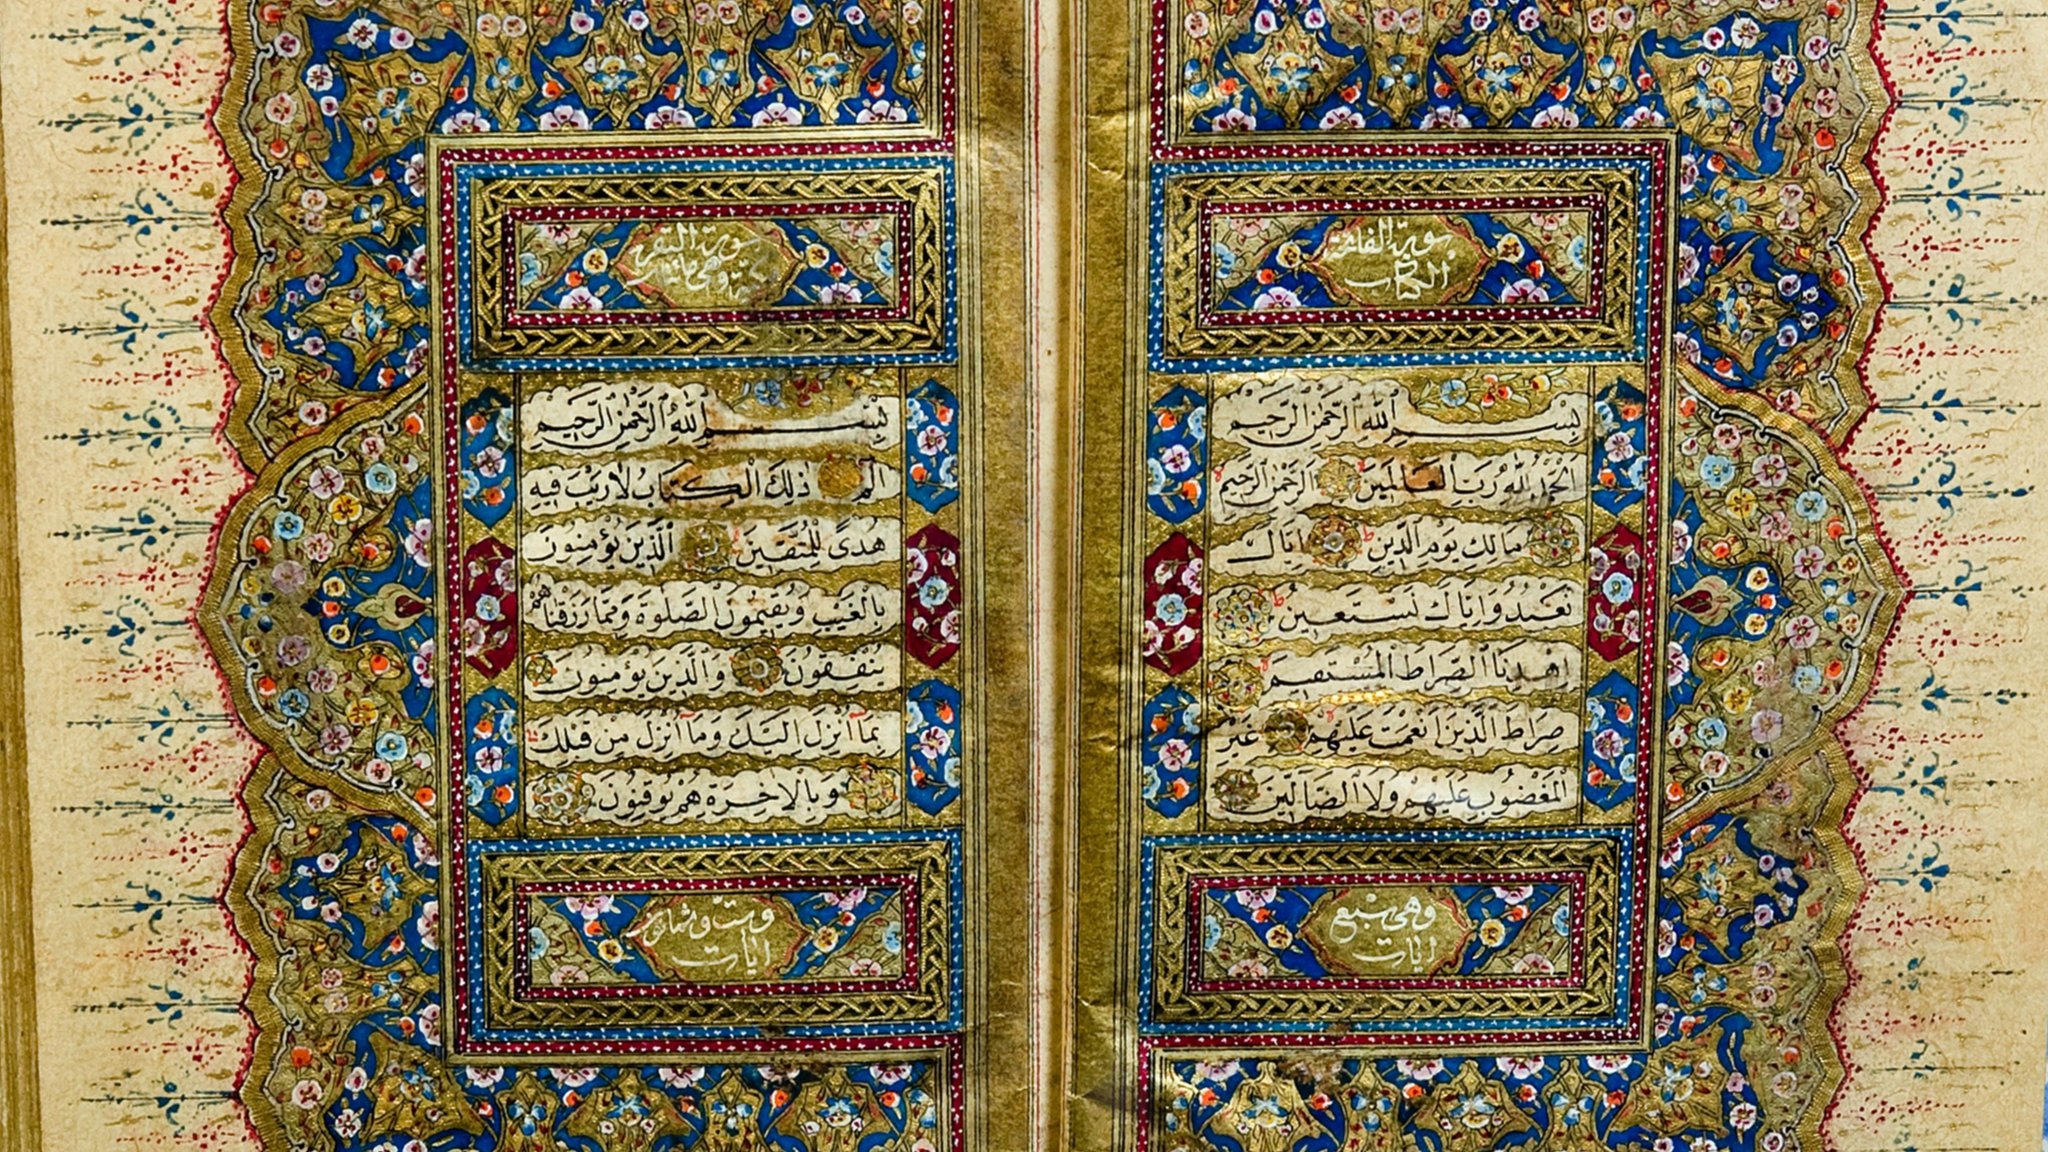 سورة الفاتحة
الكتاب
بِسْمِ اللّٰهِ الرَّحْمٰنِ الرَّحِيمِ
اَلْحَمْدُ لِلّٰهِ رَبِّ الْعَالَمِينَ الرَّحْمٰنِ الرَّحِيمِ
مَالِكِ يَوْمِ الدِّينِ اِيَّاكَ
نَعْبُدُ وَاِيَّاكَ نَسْتَعِينُ
اِهْدِنَا الصِّرَاطَ الْمُسْتَقِيمَ
صِرَاطَ الَّذِينَ اَنْعَمْتَ عَلَيْهِمْ غَيْرِ
الْمَغْضُوبِ عَلَيْهِمْ وَلَا الضَّالِّينَ
وهي سبع
آيات
سورة البقرة
وهي مائتان
بِسْمِ اللّٰهِ الرَّحْمٰنِ الرَّحِيمِ
الٓمٓ ذٰلِكَ الْكِتَابُ لَا رَيْبَ فِيهِ
هُدًى لِلْمُتَّقِينَ اَلَّذِينَ يُؤْمِنُونَ
بِالْغَيْبِ وَيُقِيمُونَ الصَّلٰوةَ وَمِمَّا رَزَقْنَاهُمْ
يُنْفِقُونَ وَالَّذِينَ يُؤْمِنُونَ
بِمَا اُنْزِلَ اِلَيْكَ وَمَا اُنْزِلَ مِنْ قَبْلِكَ
وَبِالْاٰخِرَةِ هُمْ يُوقِنُونَ
وست وثمانون
آيات